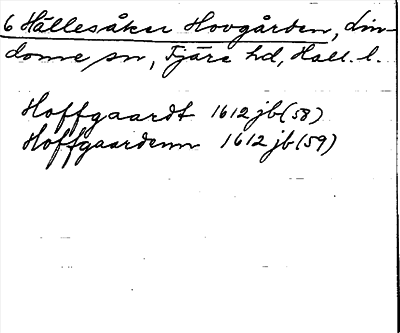 6 Hällesåker Hovgården, Lin-
dome sn, Fjäre hd, Hall. l.
Hoffgaardt 1612 jb (58)
Hoffgaardenn 1612 jb (59)